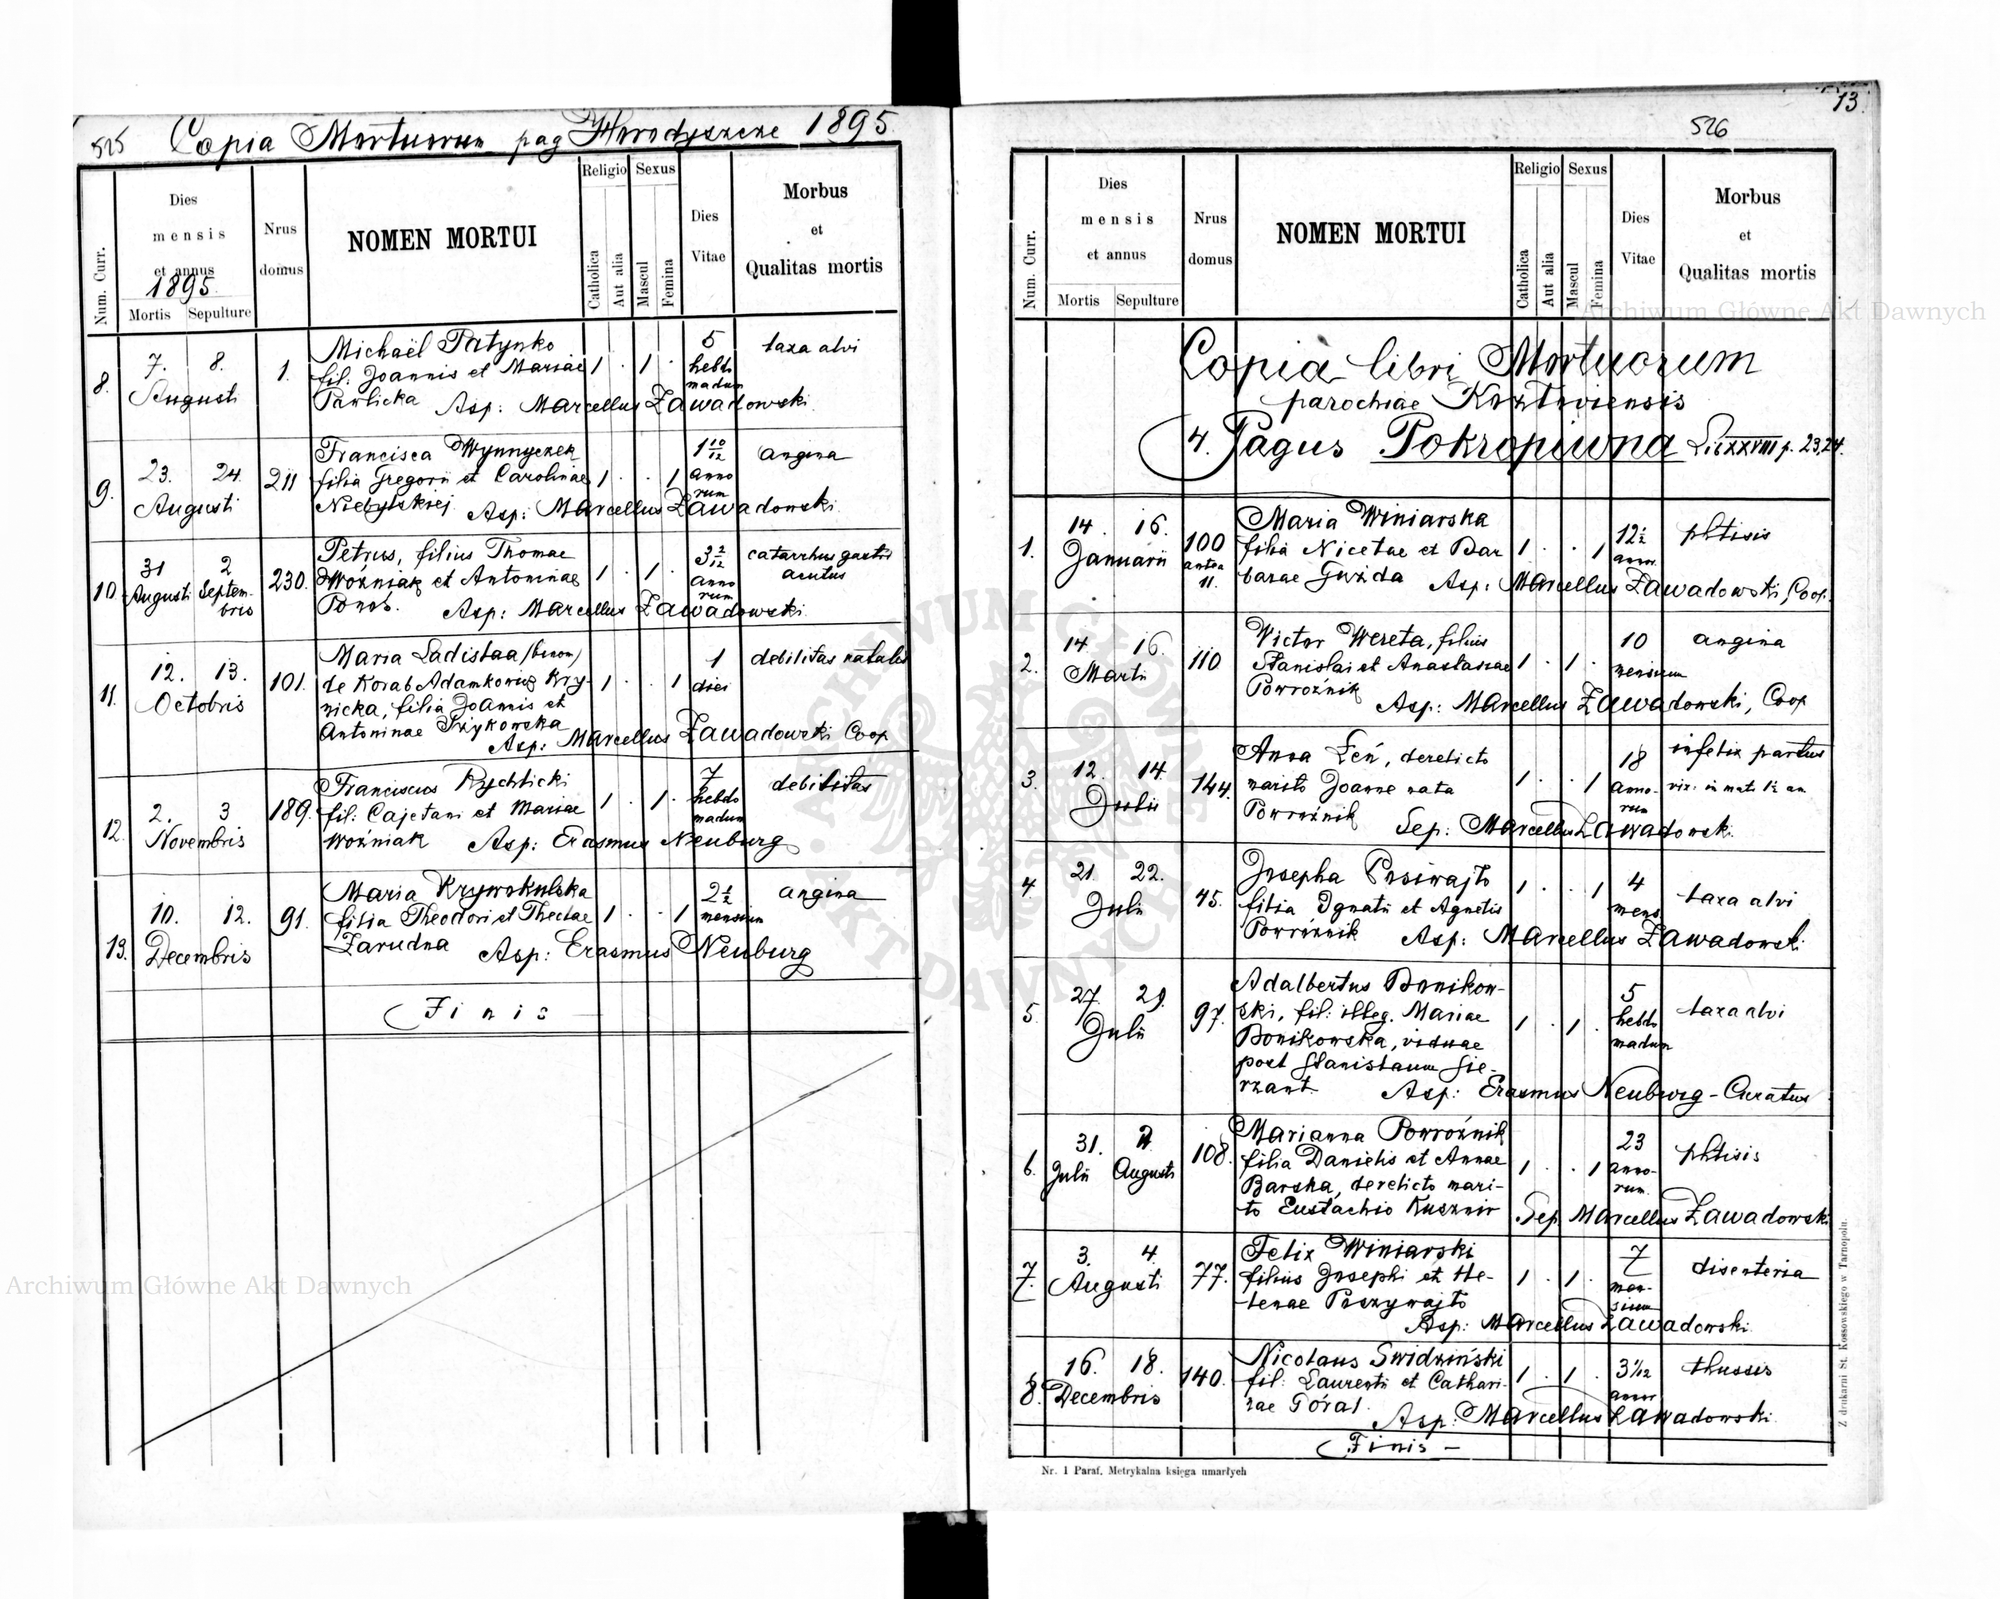 525 Copia Mortuorum pag Horodyszcze 1895
Num. Curr.
Dies mensis et annus
1895
Mortis Sepulture
Nrus domus
NOMEN MORTUI
Religio
Catholica
Aut alia
Sexus
Mascul
Femina
Dies Vitae
Morbus et Qualitas mortis
8. 7. 8. Augusti 1. Michaël Patynko 1 . 1 . 5 hebdo madum laxa alvi
fil: Joannis et Mariae
Pawlicka Asp: Marcellus Zawadowski
9. 23. 24. Augusti 211 Francisca Wynnyczek 1 . . 1 1 10/12 anno rum angina
filia Gregorii et Carolinae
Niebylskiej Asp: Marcellus Zawadowski
10. 31 Augusti 2 Septem-bris 230. Petrus, filius Thomae 1 . 1 . 3 2/12 anno rum catarrhus gastri acutus
Woźniak et Antoninae
Ponob. Asp: Marcellus Zawadowski
11. 12. 13. Octobris 101. Maria Ladislaa (binom) 1 . . 1 1 diei debilitas natalis
de Korab Adamkowicz Kry-
nicka, filia Joannis et
Antoninae
Asp: Marcellus Zawadowski Coop
12. 2. 3 Novembris 189. Franciscus Rychlicki 1 . 1 . 7 hebdo madum debilitas
fil: Cajetani et Mariae
Woźniak Asp: Erasmus Neuburg
13. 10. 12. Decembris 91. Maria Krywokulska 1 . . 1 2 1/2 mensium angina
filia Theodori et Theclae
Zarudna Asp: Erasmus Neuburg
Finis
13
526
Num. Curr.
Dies mensis et annus
Mortis Sepulture
Nrus domus
NOMEN MORTUI
Religio
Catholica
Aut alia
Sexus
Mascul
Femina
Dies Vitae
Morbus et Qualitas mortis
Copia libri Mortuorum
parochiae Kozłoviensis
4. Pagus Pokropiwna Lit XXVIII p. 23,24.
1. 14. 16. Januarii 100 antea 11. Maria Winiarska 1 . . 1 12 1/2 annor phtisis
filia Nicetae et Bar
barae Gwizda Asp: Marcellus Zawadowski, Coop.
2. 14. 16. Martii 110 Victor Wereta, filius 1 . 1 . 10 mensium angina
Stanislai et Anastasiae
Powroźnik
Asp: Marcellus Zawadowski, Coop
3. 12. 14. Julii 144. Anna Leń, derelicto 1 . . 1 18 anno-rum infelix partus
marito Joanne nata vix: in mat. 1½ an
Powroźnik Sep: Marcellus Zawadowski
4. 21. 22. Julii 45. Josepha 1 . . 1 4 mens laxa alvi
filia Ignatii et Agnetis
Powroźnik Asp: Marcellus Zawadowski
5. 27. 29. Julii 97. Adalbertus Bonikow- 1 . 1 . 5 hebdo madum laxa alvi
ski, fil: illeg. Mariae
Bonikowska, viduae
post Stanislaum Sie-
rzant Asp: Erasmus Neuburg - Curatus
6. 31. Julii Augusti 108. Marianna Powroźnik 1 . . 1 23 anno-rum. phtisis
filia Danielis et Annae
Barska, derelicto mari-
to Eustachio Kusznir Sep Marcellus Zawadowski
7. 3. 4. Augusti 77. Felix Winiarski 1 . 1 . 7 men-sium disenteria
filius Josephi et He-
lenae Poszywajło
Asp: Marcellus Zawadowski
8. 16. 18. Decembris 140. Nicolaus Swidziński 1 . 1 . 3 1/12 annor thussis
fil: Laurentii et Cathari-
nae Góral.
Asp: Marcellus Zawadowski
Finis -
Nr. 1 Paraf. Metrykalna księga umarłych
Z drukarni St. Kossowskiego w Tarnopolu.
Archiwum Główne Akt Dawnych
Archiwum Główne Akt Dawnych
ARCHIWUM GŁÓWNE AKT DAWNYCH